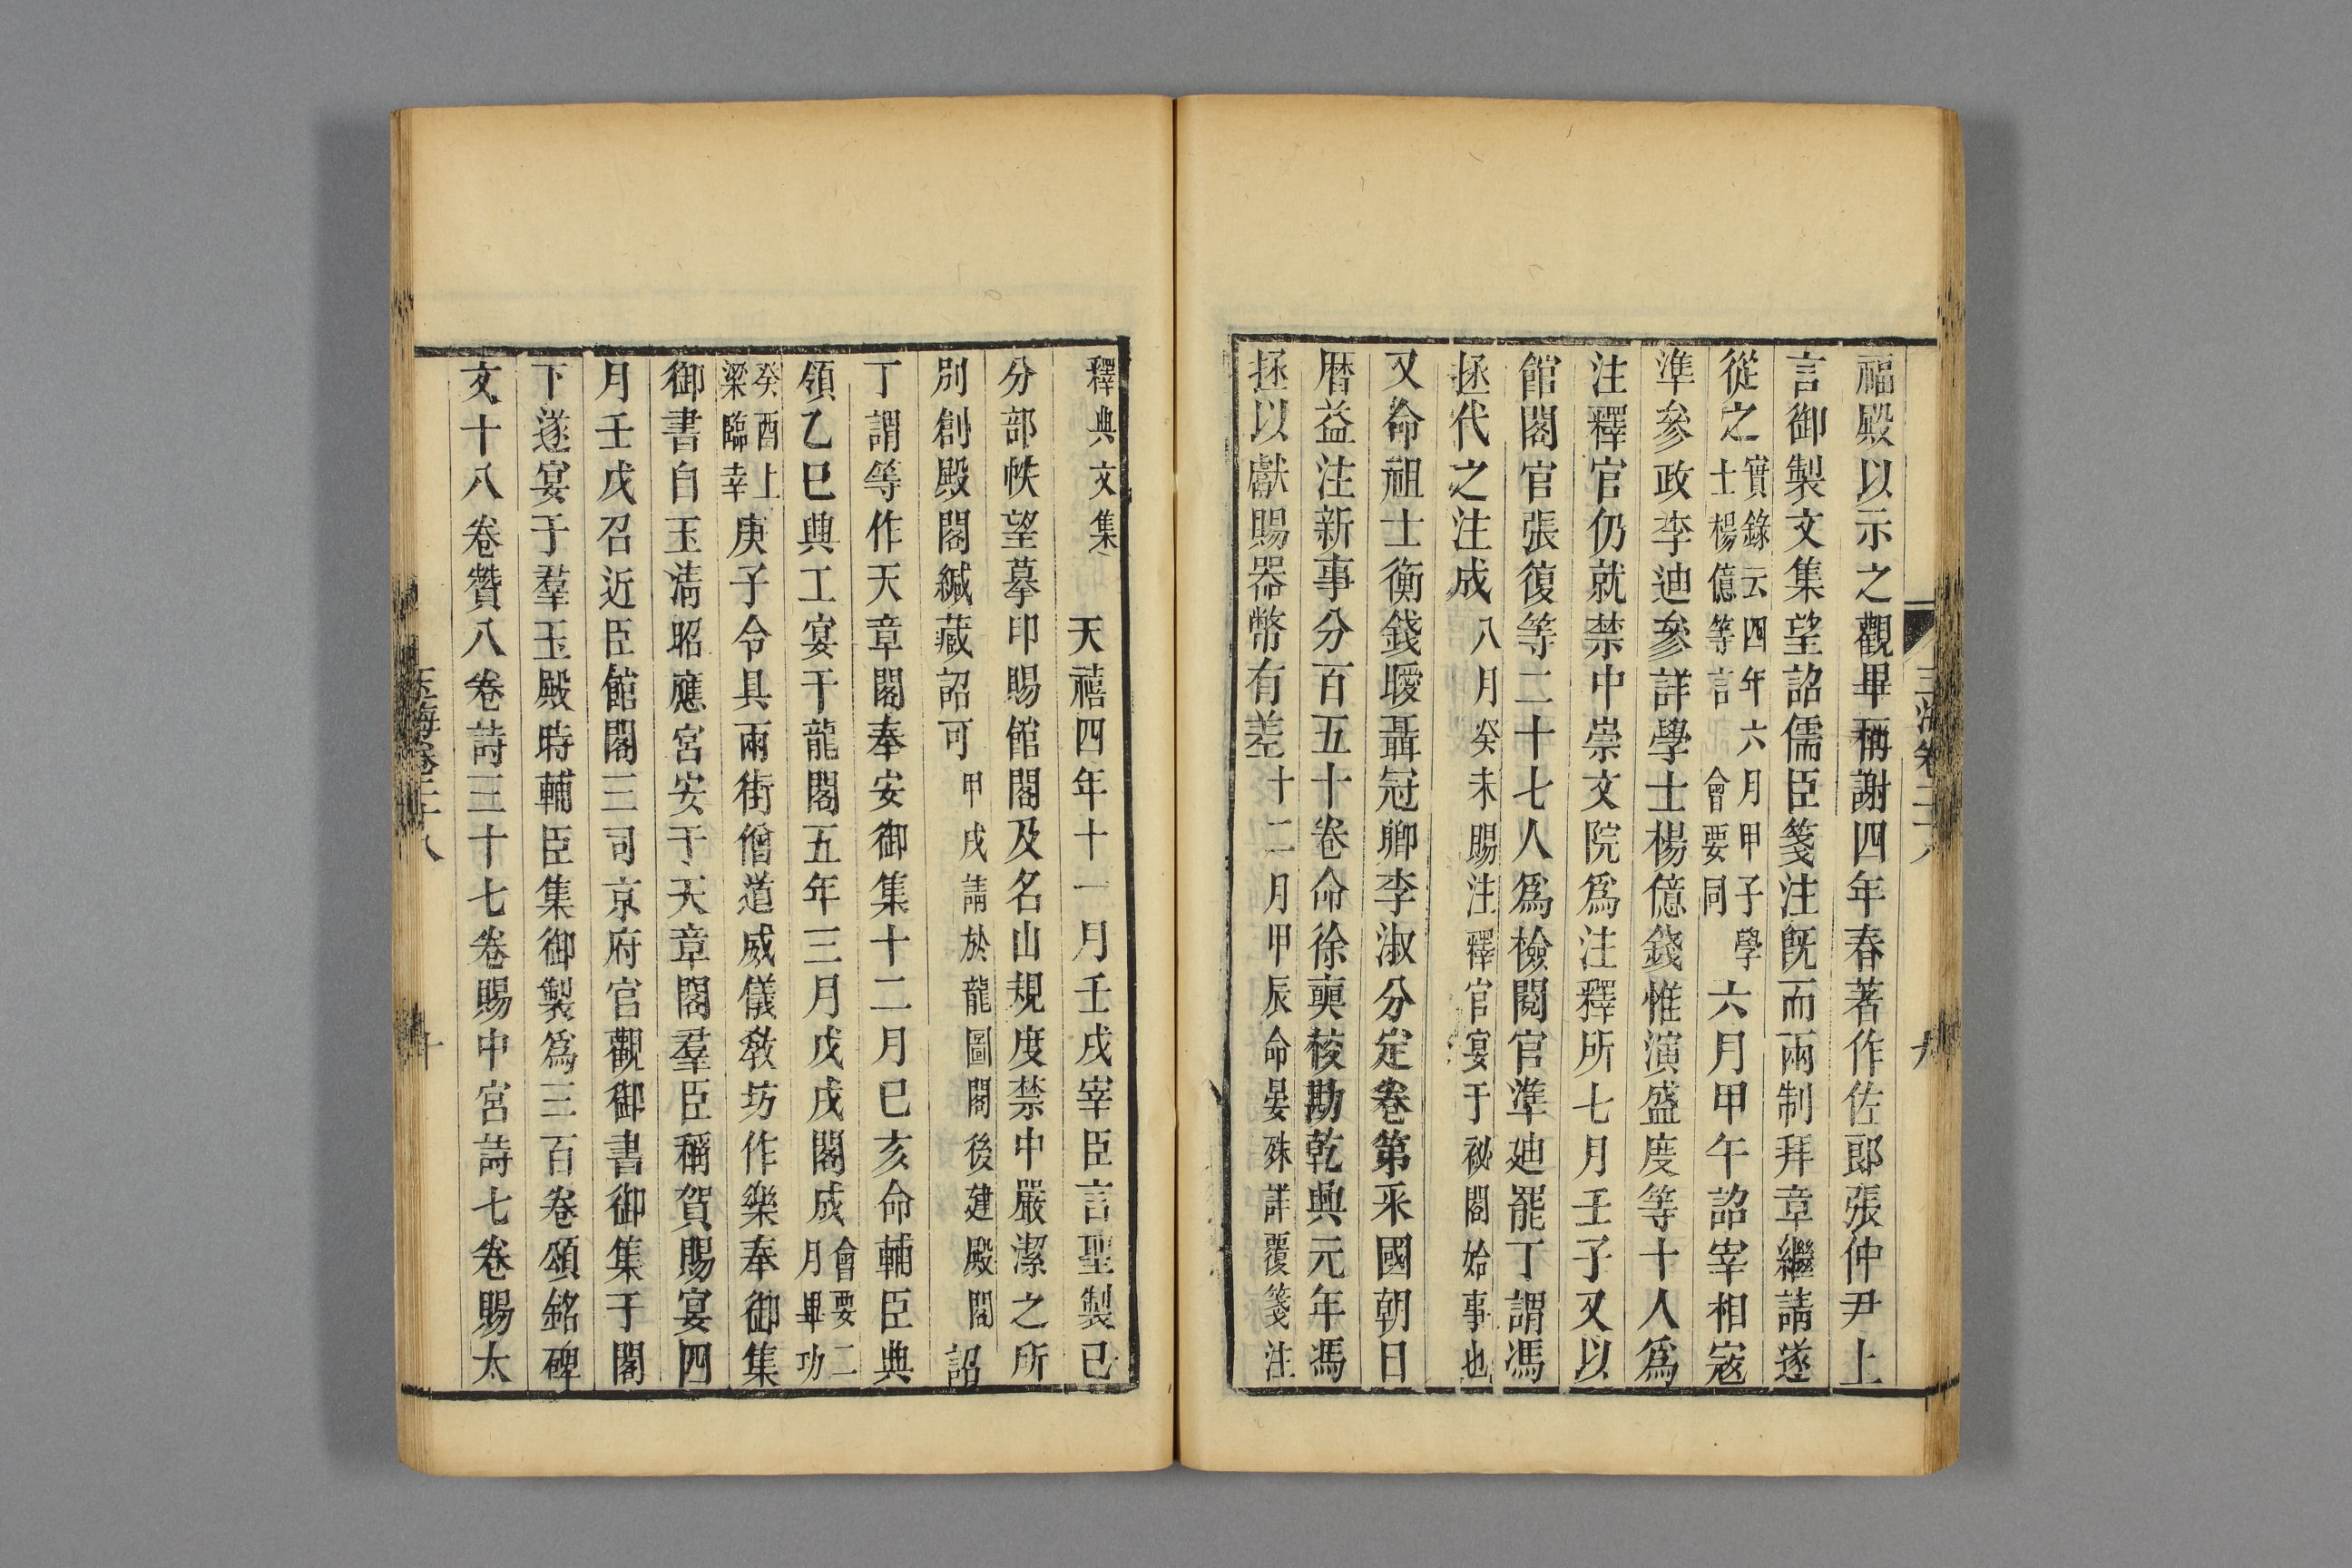 福殿以示之觀畢稱謝四年春著作佐郎張仲尹上
言御製文集望詔儒臣箋注旣而兩制拜章繼請遂
從之實錄云四年六月甲子學士楊億等言會要同六月甲午詔宰相寇
準參政李迪參詳學士楊億錢惟演盛度等十人爲
注釋官仍就禁中崇文院爲注釋所七月壬子又以
館閣官張復等二十七人爲檢閱官準廸罷丁謂馮
拯代之注成八月癸未賜注釋官宴于祕閣始事也
又命祖士衡錢曖聶冠卿李淑分定卷第采國朝日
曆益注新事分百五十卷命徐奭校勘乾興元年馮
拯以獻賜器幣有差十二月甲辰命晏殊詳覆箋注
釋典文集
天禧四年十一月壬戌宰臣言聖製已
分部帙望摹印賜館閣及名山規度禁中嚴潔之所
別創殿閣緘藏詔可甲戌請於龍圖閣後建殿閣詔
丁謂等作天章閣奉安御集十二月巳亥命輔臣典
領乙巳興工宴于龍閣五年三月戊戌閣成會要二月畢功
癸酉上梁臨幸庚子令具兩街僧道威儀敎坊作樂奉御集
御書自玉淸昭應宮安于天章閣羣臣稱賀賜宴四
月壬戌召近臣館閣三司京府官觀御書御集于閣
下遂宴于羣玉殿時輔臣集御製爲三百卷頌銘碑
文十八卷贊八卷詩三十七卷賜中宮詩七卷賜太
玉海卷二十八
十